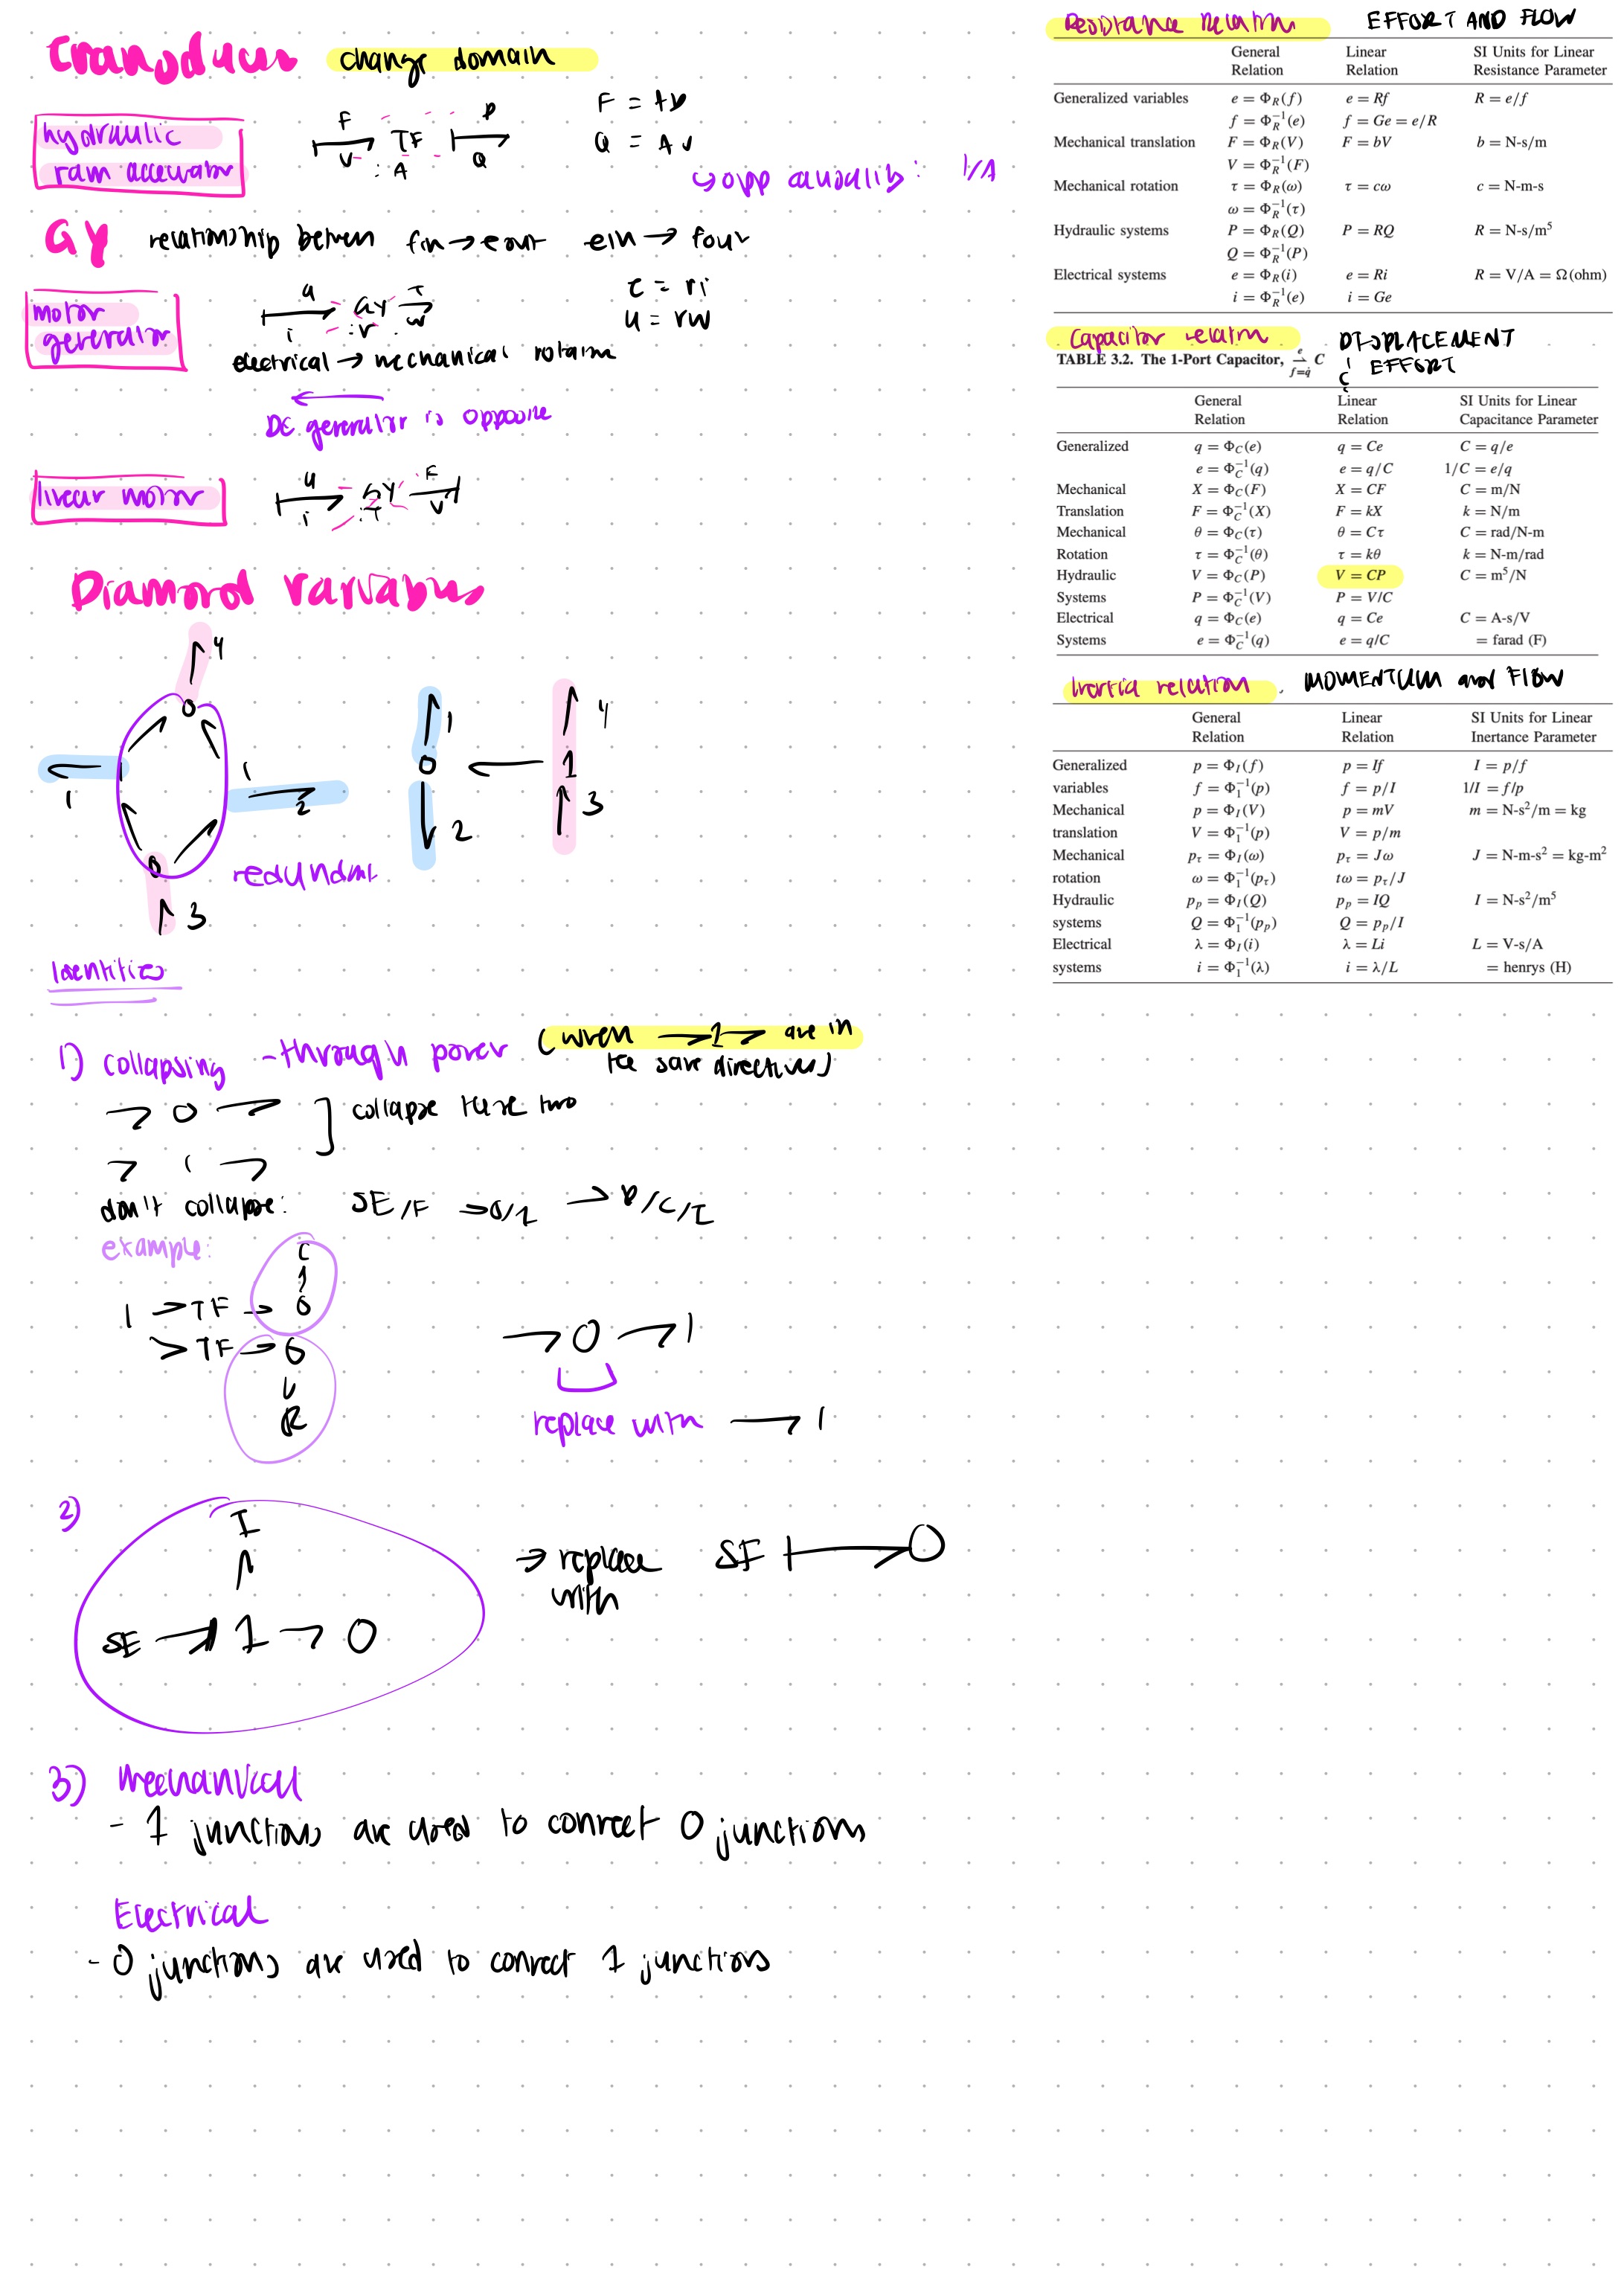 Transducers change domain
hydraulic
ram accuator
F
V
TF
: A
P
Q
F = AP
Q = AV
↳ opp causality: 1/A
GY relationship between fin → eout ein → fout
motor
generator
u
i
GY
: r
τ
ω
τ = ri
u = rω
electrical → mechanical rotation
DC generator is opposite
linear motor
u
i
GY
: T
F
V
Diamond variables
4
0
1
1
1
2
0
3
redundant
1
0
2
4
1
3
Identities
1) collapsing - through power (when → 1 → are in
the same directives)
→ 0 → ] collapse these two
→ 1 →
don't collapse: SE/F → 0/1 → R/C/I
example:
C
1
1 → TF → 0
→ TF → 0
↓
R
→ 0 → 1
replace with → 1
2)
I
SE → 1 → 0
→ replace
with
SF → 0
3) Mechanical
- 1 junctions are used to connect 0 junctions
Electrical
- 0 junctions are used to connect 1 junctions
Resistance Relation EFFORT AND FLOW
General Relation Linear Relation SI Units for Linear Resistance Parameter
Generalized variables e = Φ_R(f) e = Rf R = e/f
f = Φ_R^−1(e) f = Ge = e/R
Mechanical translation F = Φ_R(V) F = bV b = N-s/m
V = Φ_R^−1(F)
Mechanical rotation τ = Φ_R(ω) τ = cω c = N-m-s
ω = Φ_R^−1(τ)
Hydraulic systems P = Φ_R(Q) P = RQ R = N-s/m^5
Q = Φ_R^−1(P)
Electrical systems e = Φ_R(i) e = Ri R = V/A = Ω(ohm)
i = Φ_R^−1(e) i = Ge
Capacitor relation DISPLACEMENT
EFFORT
TABLE 3.2. The 1-Port Capacitor, e f=q̇ C
General Relation Linear Relation SI Units for Linear Capacitance Parameter
Generalized q = Φ_C(e) q = Ce C = q/e
e = Φ_C^−1(q) e = q/C 1/C = e/q
Mechanical X = Φ_C(F) X = CF C = m/N
Translation F = Φ_C^−1(X) F = kX k = N/m
Mechanical θ = Φ_C(τ) θ = Cτ C = rad/N-m
Rotation τ = Φ_C^−1(θ) τ = kθ k = N-m/rad
Hydraulic V = Φ_C(P) V = CP C = m^5/N
Systems P = Φ_C^−1(V) P = V/C
Electrical q = Φ_C(e) q = Ce C = A-s/V
Systems e = Φ_C^−1(q) e = q/C = farad (F)
Inertia relation MOMENTUM and FLOW
General Relation Linear Relation SI Units for Linear Inertance Parameter
Generalized p = Φ_I(f) p = If I = p/f
variables f = Φ_1^−1(p) f = p/I 1/I = f/p
Mechanical p = Φ_I(V) p = mV m = N-s^2/m = kg
translation V = Φ_1^−1(p) V = p/m
Mechanical p_τ = Φ_I(ω) p_τ = Jω J = N-m-s^2 = kg-m^2
rotation ω = Φ_1^−1(p_τ) tω = p_τ/J
Hydraulic p_p = Φ_I(Q) p_p = IQ I = N-s^2/m^5
systems Q = Φ_1^−1(p_p) Q = p_p/I
Electrical λ = Φ_I(i) λ = Li L = V-s/A
systems i = Φ_1^−1(λ) i = λ/L = henrys (H)